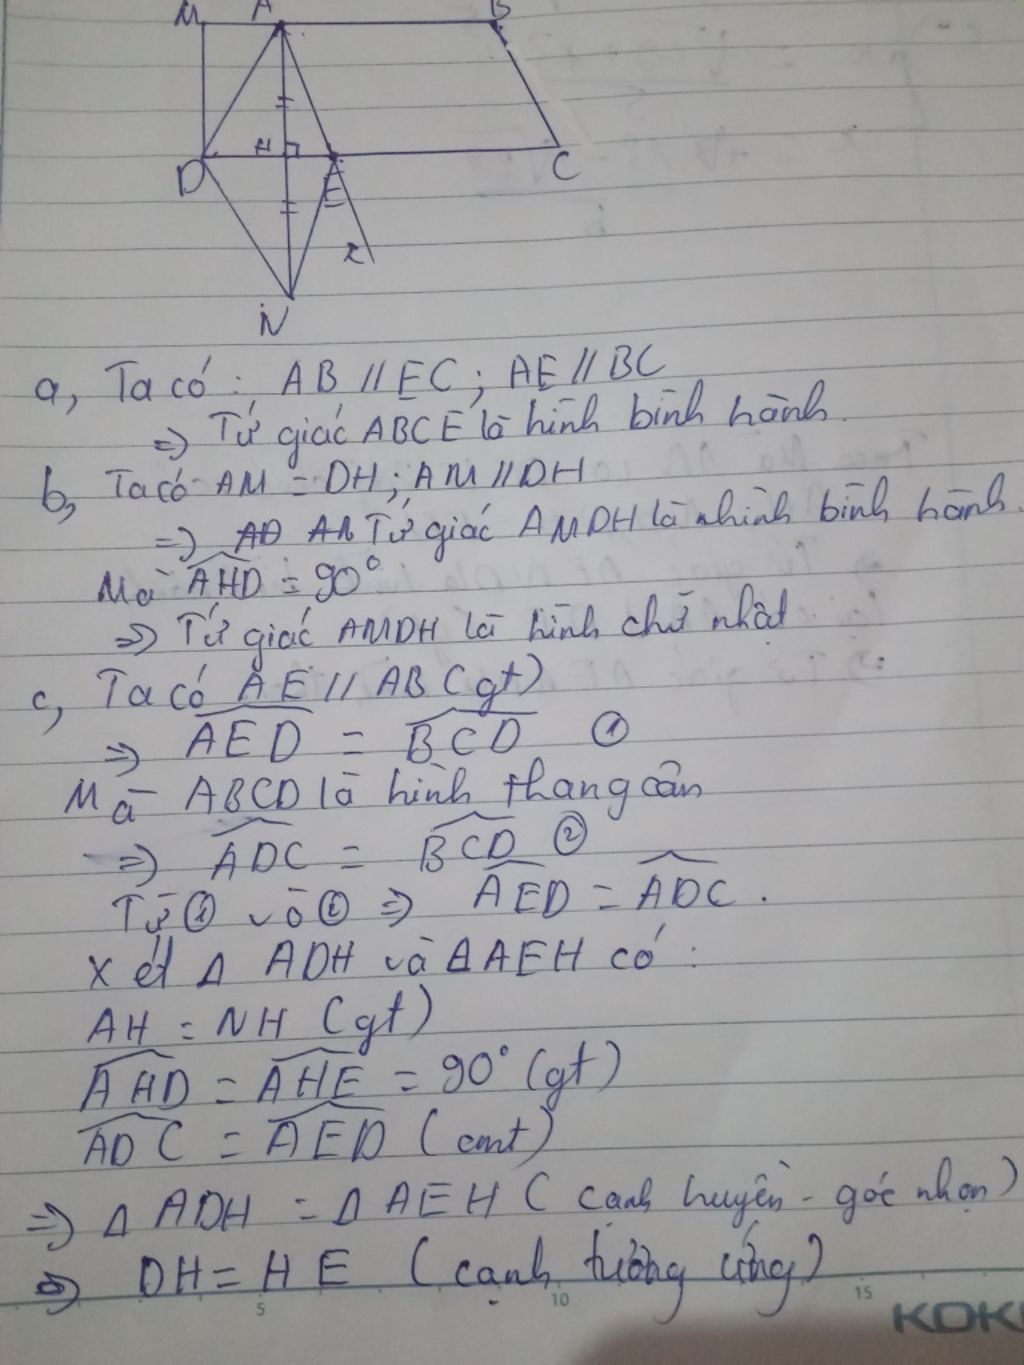 M A B
H
D E C
x
N
a, Ta có : AB // EC ; AE // BC
=> Tứ giác ABCE là hình bình hành.
b, Ta có AM = DH ; AM // DH
=> Tứ giác AMDH là nhình bình hành.
Mà AHD = 90°
=> Tứ giác AMDH là hình chữ nhật
c, Ta có AE // AB (gt)
=> AED = BCD ①
Mà ABCD là hình thang cân
=> ADC = BCD ②
Từ ① và ② => AED = ADC.
Xét Δ ADH và ΔAEH có :
AH = NH (gt)
AHD = AHE = 90° (gt)
ADC = AED (cmt)
=> Δ ADH = Δ AEH ( cạnh huyền - góc nhọn)
=> DH = HE ( cạnh tương ứng)
5 10 15